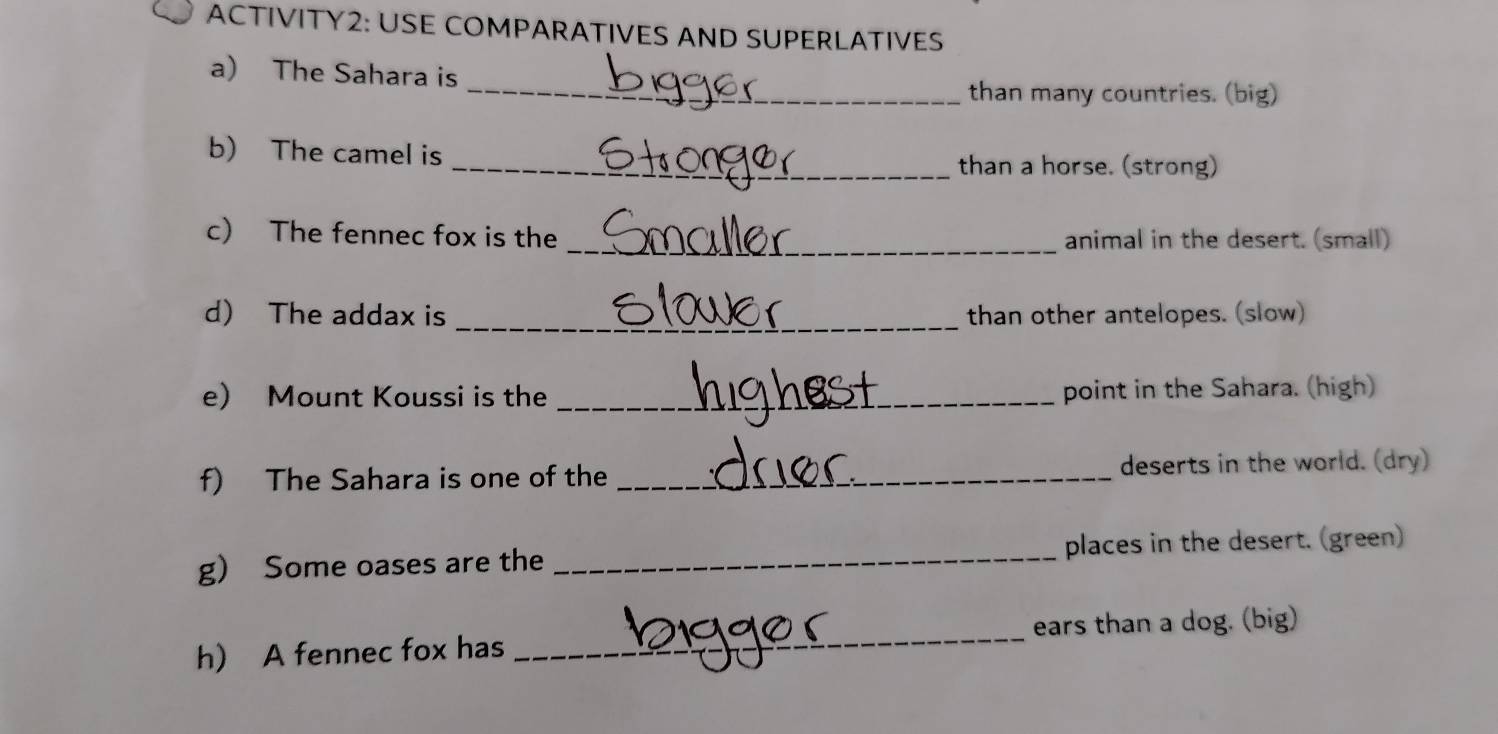 ACTIVITY2: USE COMPARATIVES AND SUPERLATIVES
a) The Sahara is bigger than many countries. (big)
b) The camel is Stronger than a horse. (strong)
c) The fennec fox is the Smaller animal in the desert. (small)
d) The addax is slower than other antelopes. (slow)
e) Mount Koussi is the highest point in the Sahara. (high)
f) The Sahara is one of the drier deserts in the world. (dry)
g) Some oases are the ____________ places in the desert. (green)
h) A fennec fox has bigger ears than a dog. (big)